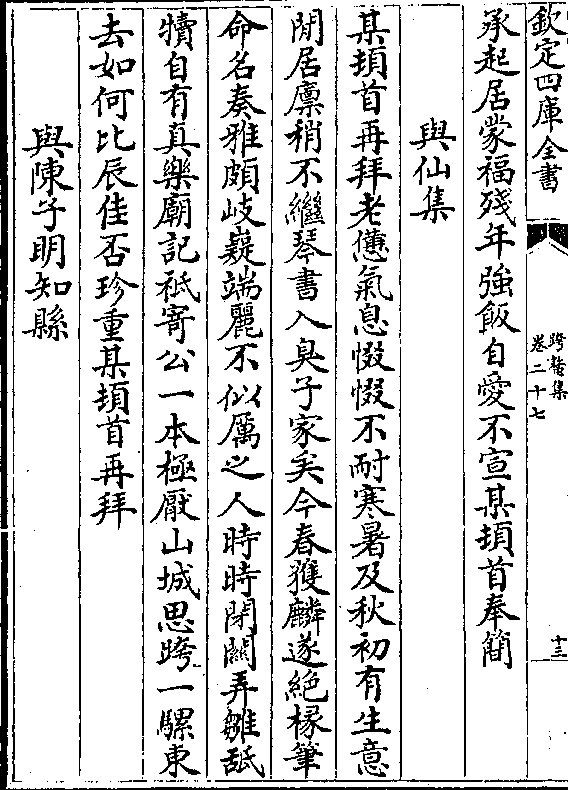 欽定四庫全書
跨鼇集
卷二十七
十三
承起居蒙福殘年強飯自愛不宣某頓首奉簡
與仙集
某頓首再拜老憊氣息惙惙不耐寒暑及秋初有生意
閒居廪稍不繼琴書入臭子家矣今春獲麟遂絶椽筆
命名奏雅頗岐嶷端麗不似厲之人時時閉闗弄雛舐
犢自有真樂廟記祗寄公一本極厭山城思跨一騾東
去如何比辰佳否珍重某頓首再拜
與陳子明知縣